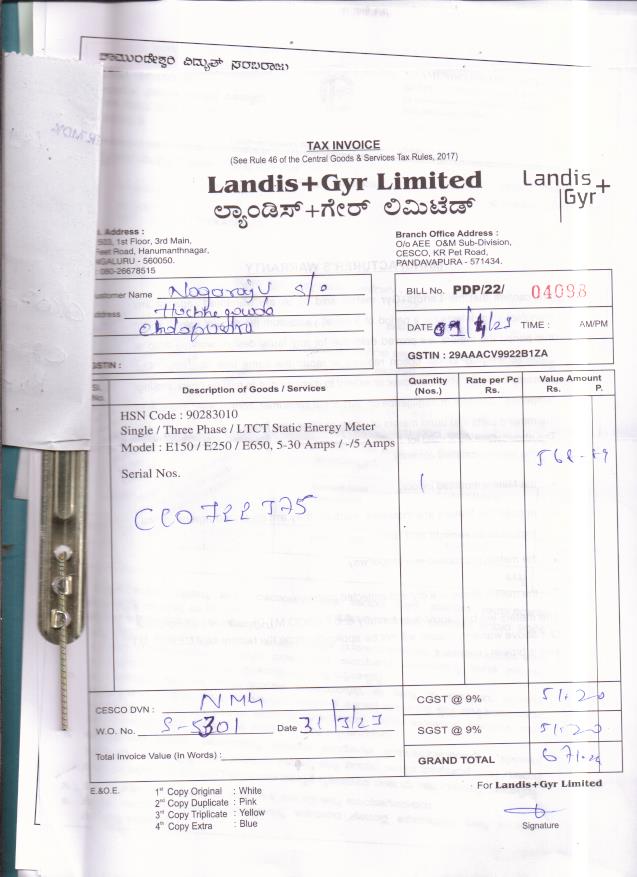 ಚಾಮುಂಡೇಶ್ವರಿ ವಿದ್ಯುತ್ ಸರಬರಾಜು
TAX INVOICE
(See Rule 46 of the Central Goods & Services Tax Rules, 2017)
Landis+Gyr Limited
ಲ್ಯಾಂಡಿಸ್+ಗೇರ್ ಲಿಮಿಟೆಡ್
Landis+
Gyr
Address :
1st Floor, 3rd Main,
Road, Hanumanthnagar,
GALURU - 560050.
080-26678515
Branch Office Address :
O/o AEE O&M Sub-Division,
CESCO, KR Pet Road,
PANDAVAPURA - 571434.
ustomer Name Nagaraju S/o
ddress Huchhegowda
BILL No. PDP/22/ 04098
DATE /23 TIME : AM/PM
GSTIN :
GSTIN : 29AAACV9922B1ZA
No. Description of Goods / Services Quantity (Nos.) Rate per Pc Rs. Value Amount Rs. P.
HSN Code : 90283010
Single / Three Phase / LTCT Static Energy Meter
Model : E150 / E250 / E650, 5-30 Amps / -/5 Amps
Serial Nos. 1
CESCO DVN : NMH
CGST @ 9% 51.20
W.O. No. Date 31/3/23
SGST @ 9% 51.20
Total Invoice Value (In Words) :
GRAND TOTAL
E.&O.E.
1st Copy Original : White
2nd Copy Duplicate : Pink
3rd Copy Triplicate : Yellow
4th Copy Extra : Blue
For Landis+Gyr Limited
Signature